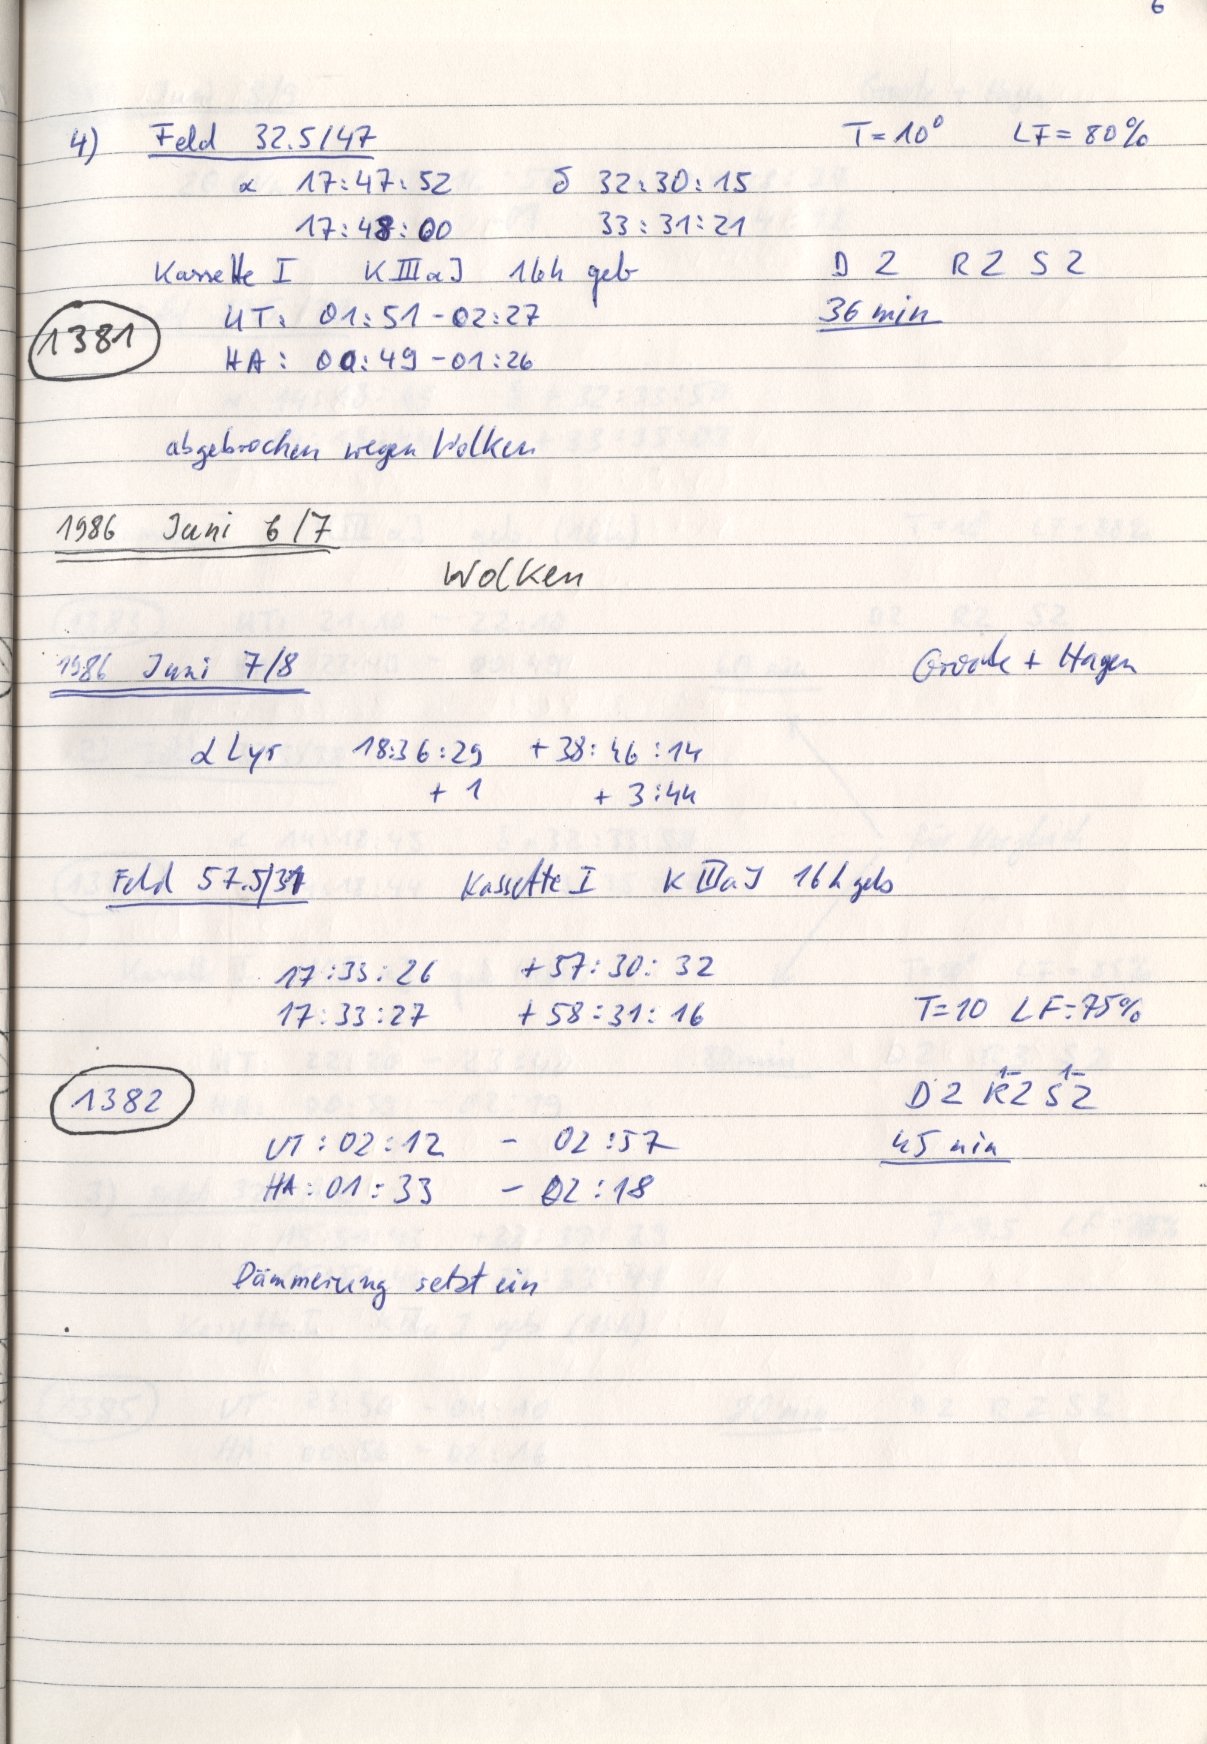 6
4) Feld 32.5/47 T=10° LF=80%
α 17:47:52 δ 32:30:15
17:48:00 33:31:21
Kassette I K IIIaJ 16h geb D2 R2 S2
1381 UT: 01:51-02:27 36 min
HA: 00:49-01:26
abgebrochen wegen Wolken
1986 Juni 6/7
Wolken
1986 Juni 7/8 + Hagen
α Lyr 18:36:29 +38:46:14
+ 1 + 3:44
Feld 57.5/31 Kassette I K IIIaJ 16h geb
17:33:26 +57:30:32
17:33:27 +58:31:16 T=10 LF=75%
1382 D2 R2 S2
1- 1-
UT:02:12 - 02:57 45 min
HA:01:33 - 02:18
Dämmerung setzt ein